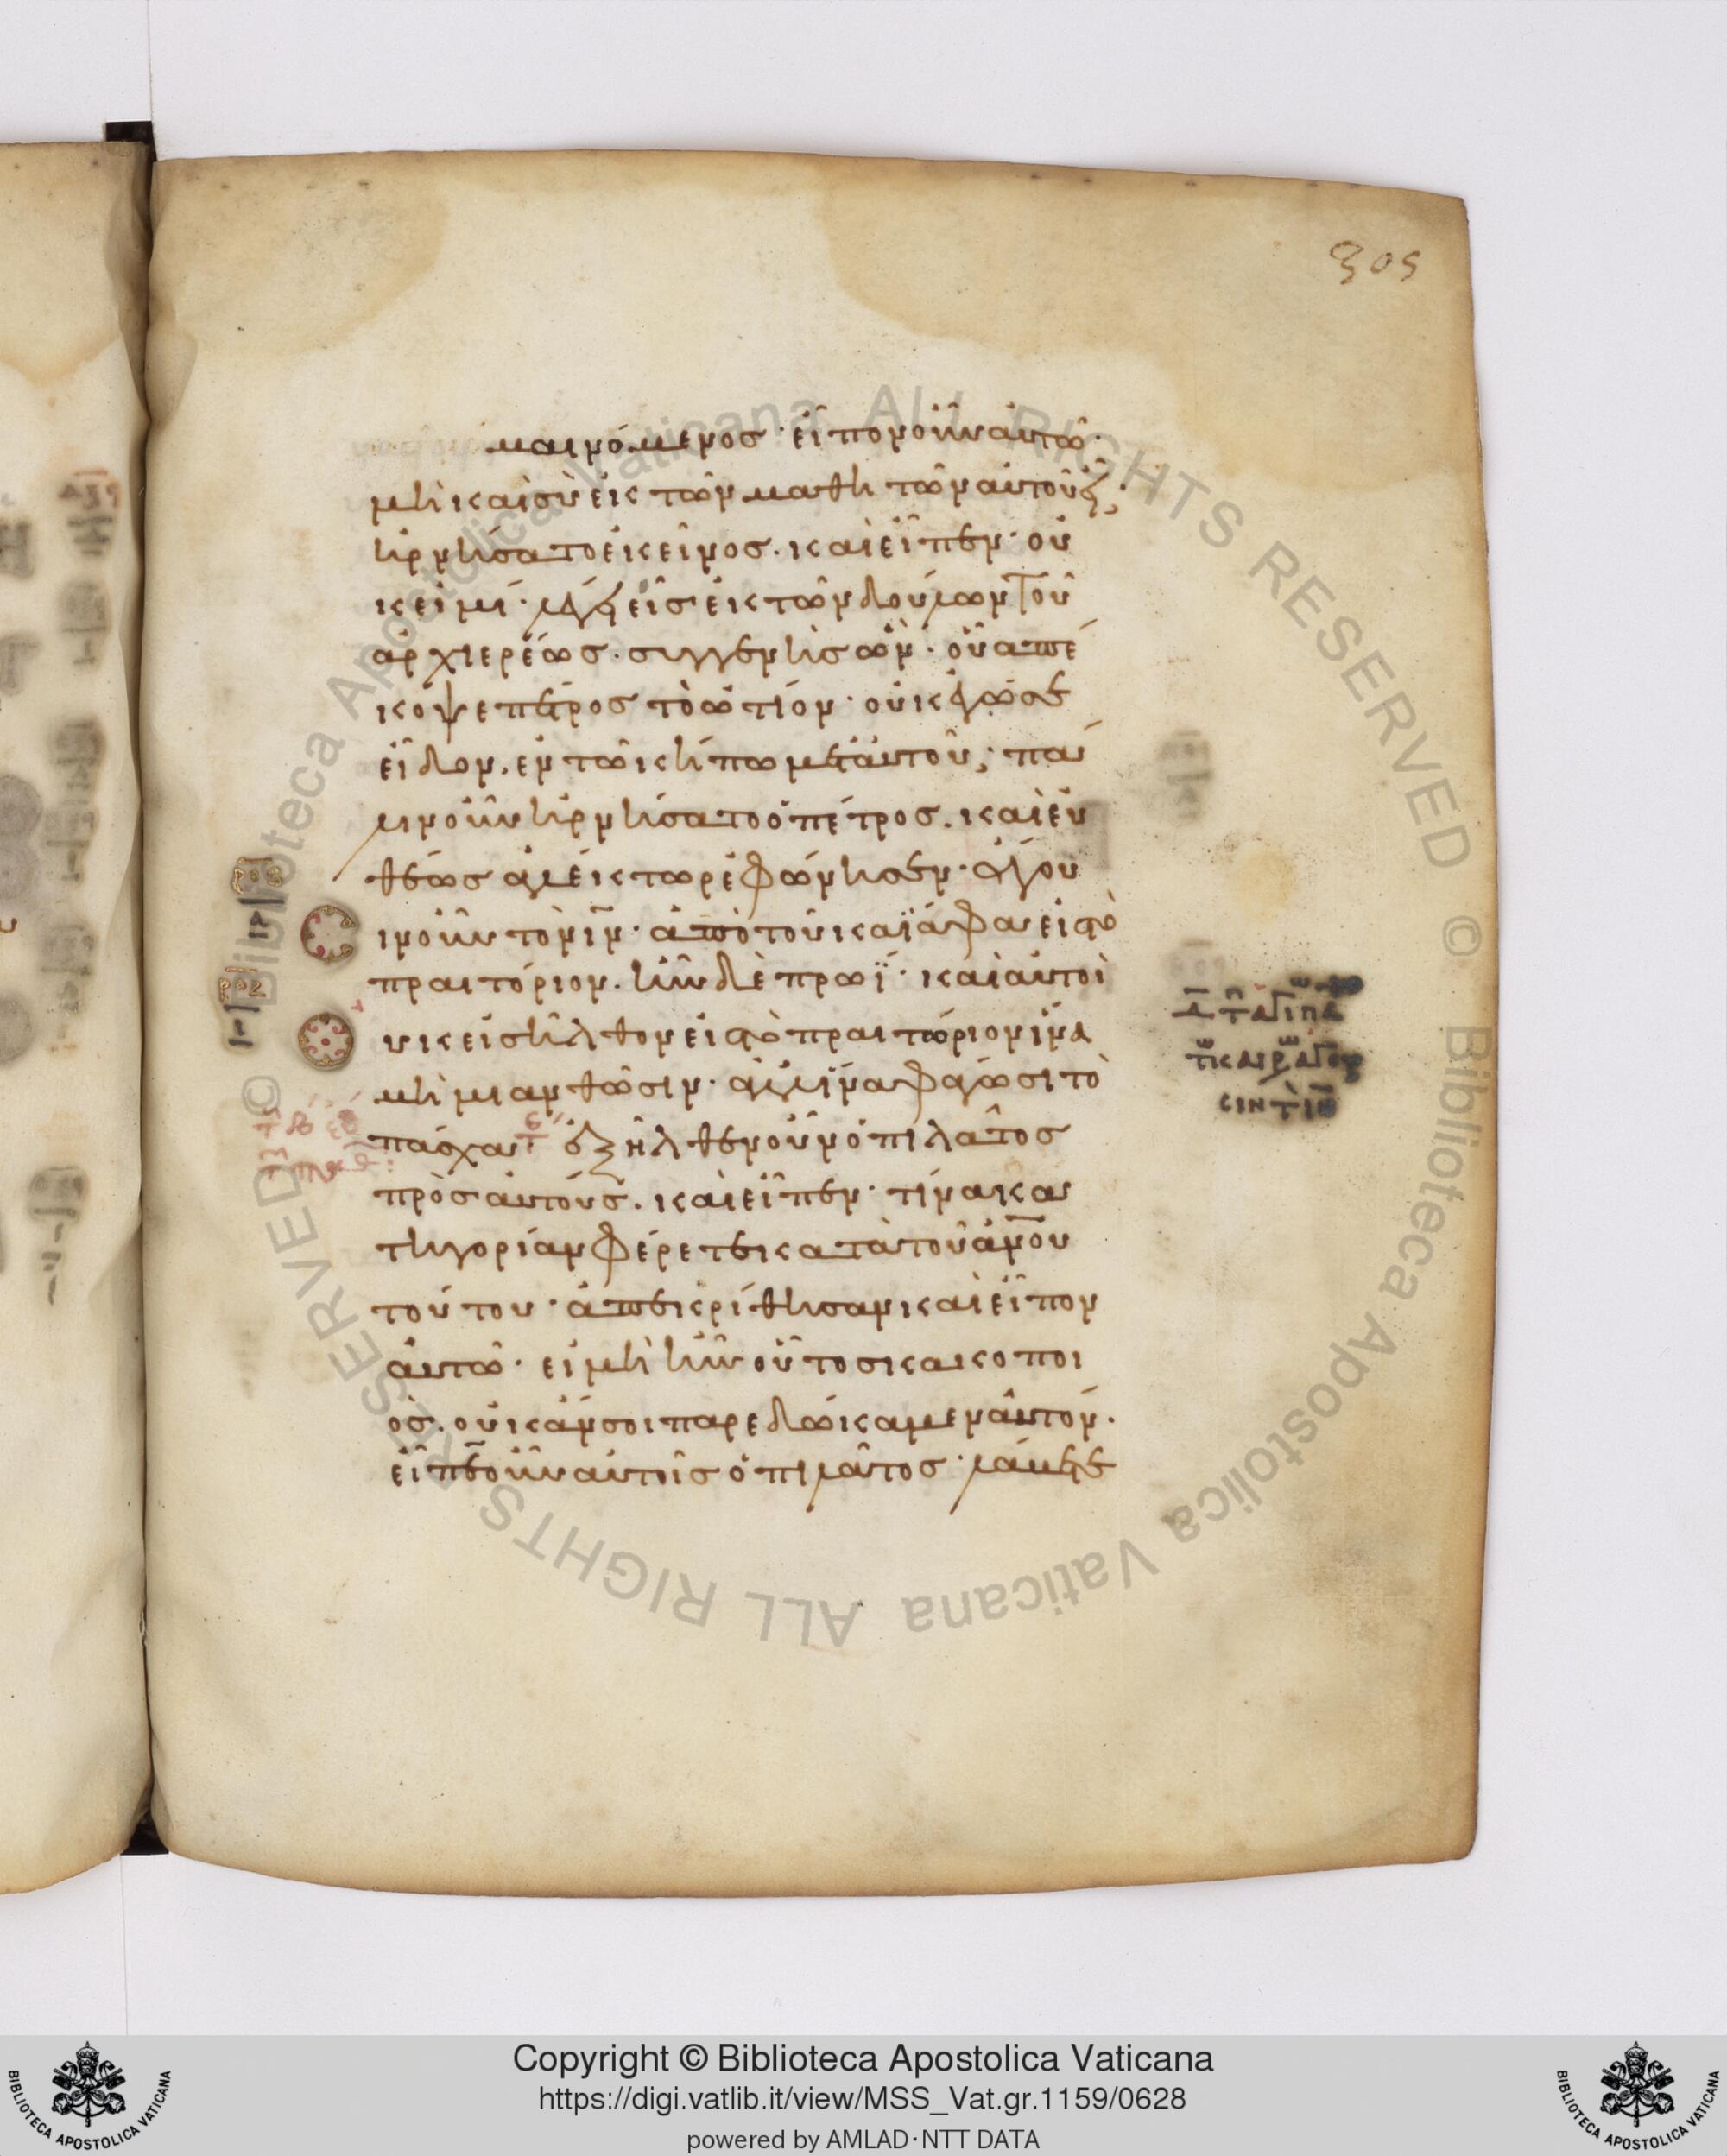 305
μαινόμενος· εἶπον οὖν αὐτῶ·
μὴ καὶ σὺ ἐκ τῶν μαθητῶν αὐτοῦ εἶ;
ἠρνήσατο ἐκεῖνος. καὶ εἶπεν· οὐ
κ εἰμί· λέγει εἷς ἐκ τῶν δούλων τοῦ
ἀρχιερέως. συγγενὴς ὢν· οὗ ἀπέ
κοψε πέτρος τὸ ὠτίον· οὐκ ἐγώ σε
εἶδον. ἐν τῶ κήπω μετ αὐτοῦ; πά
λιν οὖν ἠρνήσατο ὁ πέτρος. καὶ εὐ
θέως ἀλέκτωρ ἐφώνησεν· ἄγου
ιν οὖν τὸν ιν· ἀπὸ τοῦ καϊάφα εἰς τὸ
πραιτόριον. ἦν δὲ πρωΐ· καὶ αὐτοὶ
οὐκ εἰσῆλθον εἰς τὸ πραιτόριον ἵνα
μὴ μιανθῶσιν· ἀλλ ἵνα φάγωσι τὸ
πάσχα· ἐξῆλθεν οὖν ὁ πιλάτος
πρὸς αὐτούς. καὶ εἶπεν· τίνα κα
τηγορίαν φέρετε κατὰ τοῦ ανου
τούτου· ἀπεκρίθησαν καὶ εἶπον
αὐτῶ· εἰ μὴ ἦν οὗτος κακοποι
ός. οὐκ ἄν σοι παρεδώκαμεν αὐτόν.
εἶπεν οὖν αὐτοῖς ὁ πιλάτος· λάβετε
Copyright © Biblioteca Apostolica Vaticana
https://digi.vatlib.it/view/MSS_Vat.gr.1159/0628
powered by AMLAD·NTT DATA
BIBLIOTECA APOSTOLICA VATICANA
BIBLIOTECA APOSTOLICA VATICANA
© Biblioteca Apostolica Vaticana ALL RIGHTS RESERVED
© Biblioteca Apostolica Vaticana ALL RIGHTS RESERVED